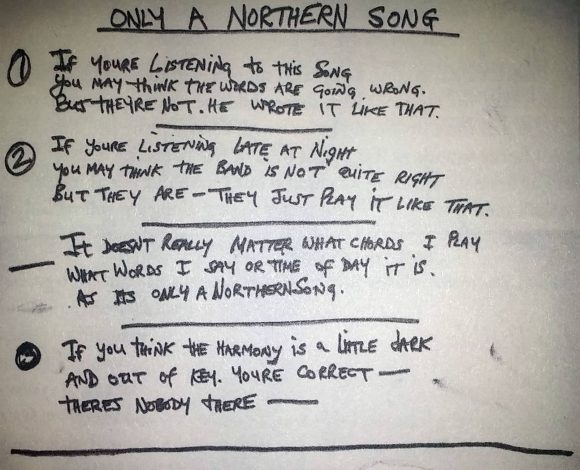 ONLY A NORTHERN SONG
① IF YOURE LISTENING to tHIS SONG
YOU MAY tHINK THE WORDS ARE GOING WRONG.
BUT THEYRE NOT. HE WROTE IT LIKE THAT.
② IF YOURE LISTENING LATE AT NIGHT
YOU MAY THINK THE BAND IS NOT QUITE RIGHT
BUT THEY ARE — THEY JUST PLAY IT LIKE THAT.
— IT DOESNT REALLY MATTER WHAT CHORDS I PLAY
WHAT WORDS I SAY OR TIME OF DAY IT IS.
AS ITS ONLY A NORTHERN SONG.
IF YOU THINK THE HARMONY IS A LITTLE DARK
AND OUT OF KEY. YOURE CORRECT —
THERES NOBODY THERE —